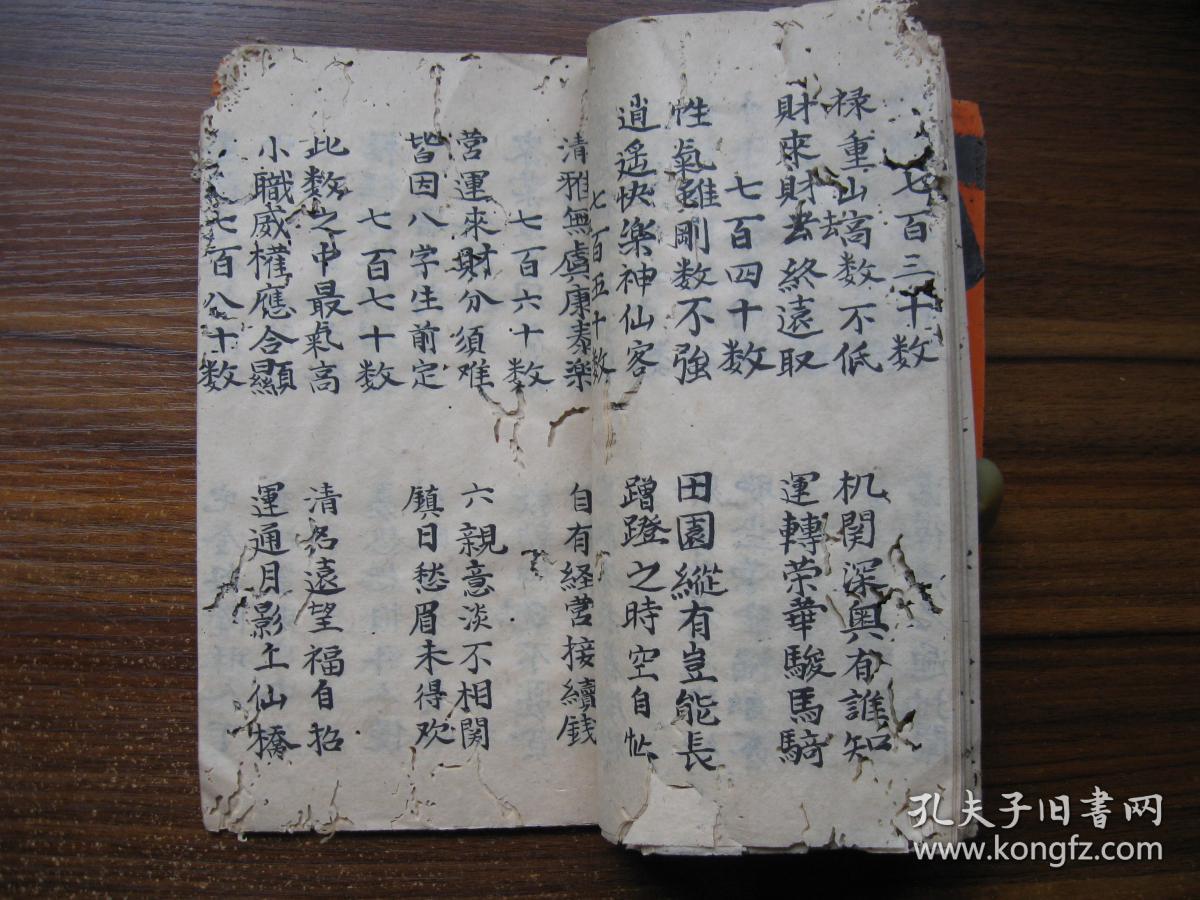 七百三十数
禄重山高数不低
机関深奥有誰知
財來財去終遠取
去
運轉荣華駿馬騎
七百四十数
性氣雖剛数不強
田園縱有豈能長
逍遙快樂神仙客
蹭蹬之時空自忙
七百五十数
清雅無虞康泰樂
自有経营接續銭
七百六十数
营運來財分須难
六親意淡不相関
皆因八字生前定
鎮日愁眉未得欢
七百七十数
此数之中最氣高
清名遠望福自招
小職威權應合顯
運通月影上仙橋
七百八十数
孔夫子旧書网
www.kongfz.com